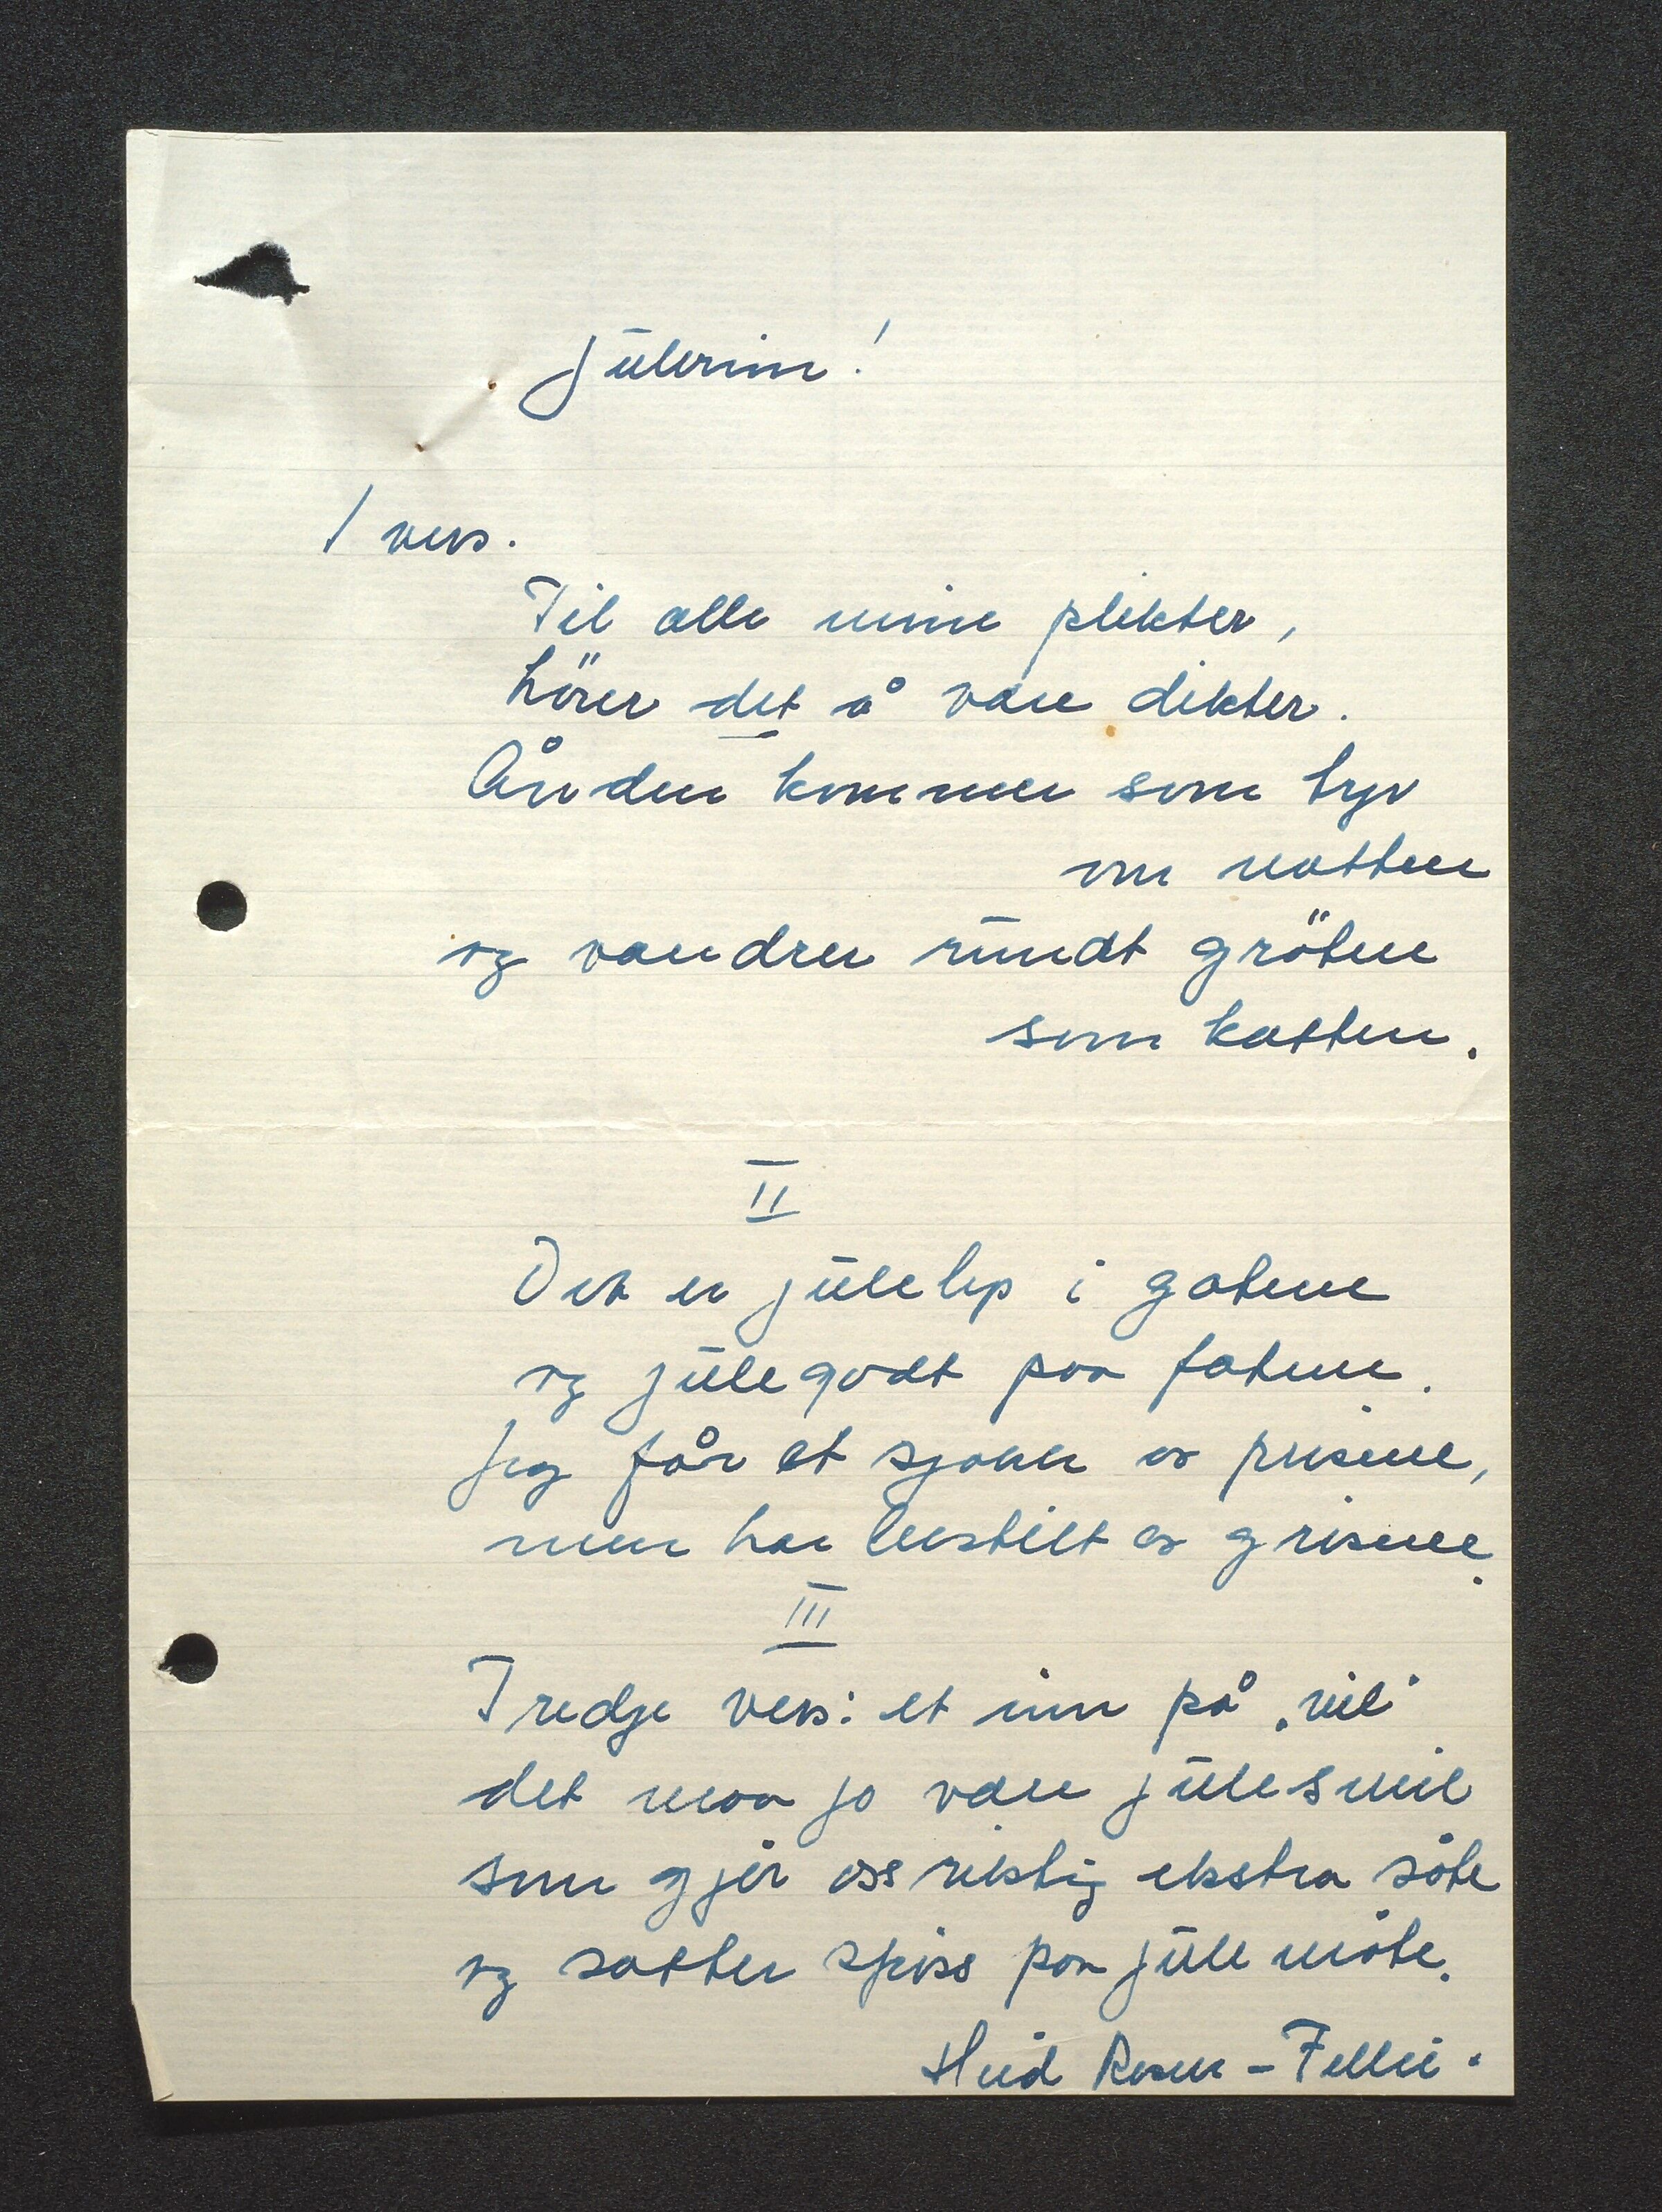 Julerim!
1 vers.
Til alle mine plikter,
hörer det å være dikter.
Ånden kommer som tyv
om natten
og vandrer rundt gröten
som katten.
II
Det er julelys i gatene
og julegodt paa fatene.
Jeg får et sjokk av prisene,
men har bestilt av grisene.
III
Tredje vers: et rim på "mil"
det maa jo være julesmil
som gjör oss riktig ekstra söte
og setter spiss paa julemöte.